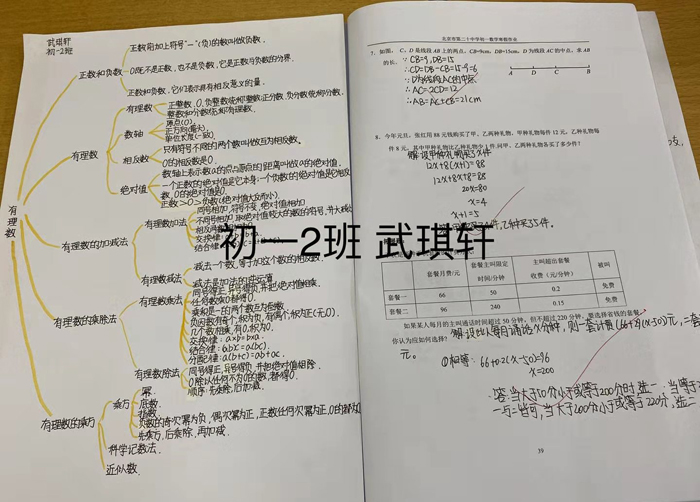 武琪轩
初一2班
正数前加上符号"一"(负)的数叫做负数.
正数和负数
0既不是正数,也不是负数,它是正数与负数的分界.
正数和负数,它们表示具有相反意义的量.
有理数
有理数
正整数、0、负整数统称整数,正分数、负分数统称分数.
整数和分数统称有理数.
数轴
原点(0).
正方向(箭头)
单位长度(一致).
相反数
只有符号不同的两个数叫做互为相反数.
0的相反数是0.
绝对值
数轴上表示数a的点与原点的距离叫做a的绝对值.
一个正数的绝对值是它本身;一个负数的绝对值是它相反
数、0的绝对值是0.
正数>0>负数
有理数
有理数的加减法
有理数加法
同号相加,符号不变,绝对值相加
交换律:
结合律:
有理数减法
减去一个数,等于加这个数的相反数.
有理数的乘除法
有理数乘法
同号得正,异号得负,并把绝对值相乘.
任何数乘0都得0.
乘积是一的两个数互为倒数
几个数相乘,有0,积为0.
交换律:axb=bxa.
结合律:(ab)c=a(bc)
分配律:a(b+c)=ab+ac.
有理数除法
同号得正,异号得负,并把绝对值相除.
0除以任何不为0的数,都得0.
顺序:先乘除,后加减.
有理数的乘方
乘方
幂.
底数.
指数.
负数的奇次幂为负,偶次幂为正,正数任何次幂为正,0的都为0
先乘方,后乘除,再加减.
科学记数法
近似数.
初一2班 武琪轩
北京市第二十中学初一数学寒假作业
7. 如图,C、D是线段AB上的两点,CB=9cm,DB=15cm,D为线段AC的中点,求AB
的长.
∵CB=9,DB=15
∴CD=DB-CB=15-9=6
∵D为线段AC的中点
∴AC=2CD=12
∴AB=AC+CB=21cm
A D C B
8. 今年元旦,张红用88元钱购买了甲、乙两种礼物,甲种礼物每件12元,乙种礼物每
件8元,其中甲种礼物比乙种礼物少1件,问甲、乙两种礼物各买了多少件?
解:设甲种礼物买了x件
12x+8(x+1)=88
12x+8x+8=88
20x=80
x=4
x+1=5
套餐月费/元 套餐主叫限定时间/分钟 主叫超出套餐收费(元/分钟) 被叫
套餐一 66 50 0.2 免费
套餐二 96 240 0.15 免费
如果某人每月的主叫通话时间超过50分钟,但不超过220分钟,要选择省钱的套餐,
你认为应如何选择?
元.
①相等:66+0.2(x-50)=96
x=200
答:当大于50分小于或等于200分时,选一;当等于
一与二皆可,当大于200分小于或等于220分,选二
39